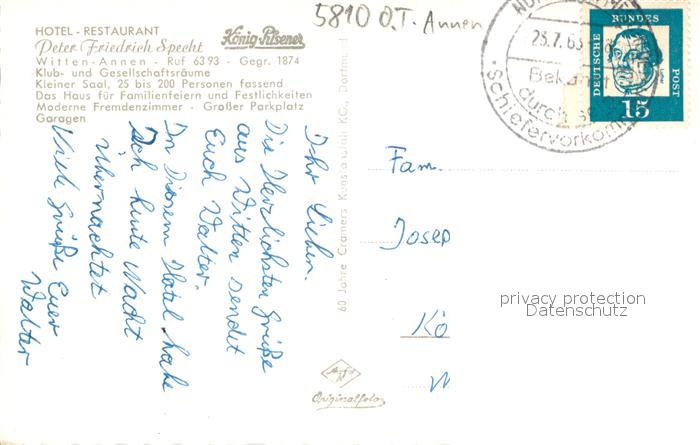 5810 O.T. Annen
HOTEL - RESTAURANT
Peter Friedrich Specht
König-Pilsener
Witten-Annen - Ruf 6393 - Gegr. 1874
Klub- und Gesellschaftsräume
Kleiner Saal, 25 bis 200 Personen fassend
Das Haus für Familienfeiern und Festlichkeiten
Moderne Fremdenzimmer - Großer Parkplatz
Garagen
DEUTSCHE
BUNDES
POST
15
23.7.63
durch
Schiefervorkom
Ihr Lieben.
Die Herzlichsten Grüße
aus Witten sendet
Euch Walter.
In Diesem Hotel habe
Ich heute Nacht
übernachtet
Viele Grüße Euer
Walter
60 Jahre Cramers Kunstanstalt KG., Dortmund
Agfa
Originalfoto
Fam.
Josep
Kö
W
privacy protection
Datenschutz